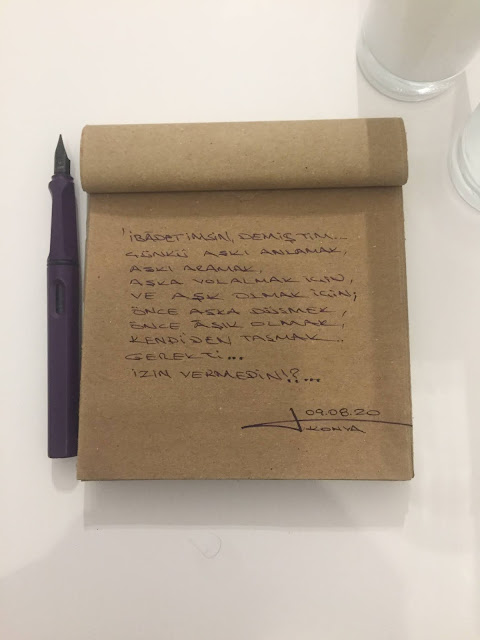 'İBÂDETİMSİN, DEMİŞTİM...
ÇÜNKÜ AŞKI ANLAMAK,
AŞKI ARAMAK,
AŞKA YOL ALMAK İÇİN,
VE AŞK OLMAK İÇİN;
ÖNCE AŞKA DÜŞMEK,
ÖNCE ÂŞIK OLMAK,
KENDİDEN TAŞMAK..
GEREKTİ...
İZİN VERMEDİN!?...
09.08.20
KONYA